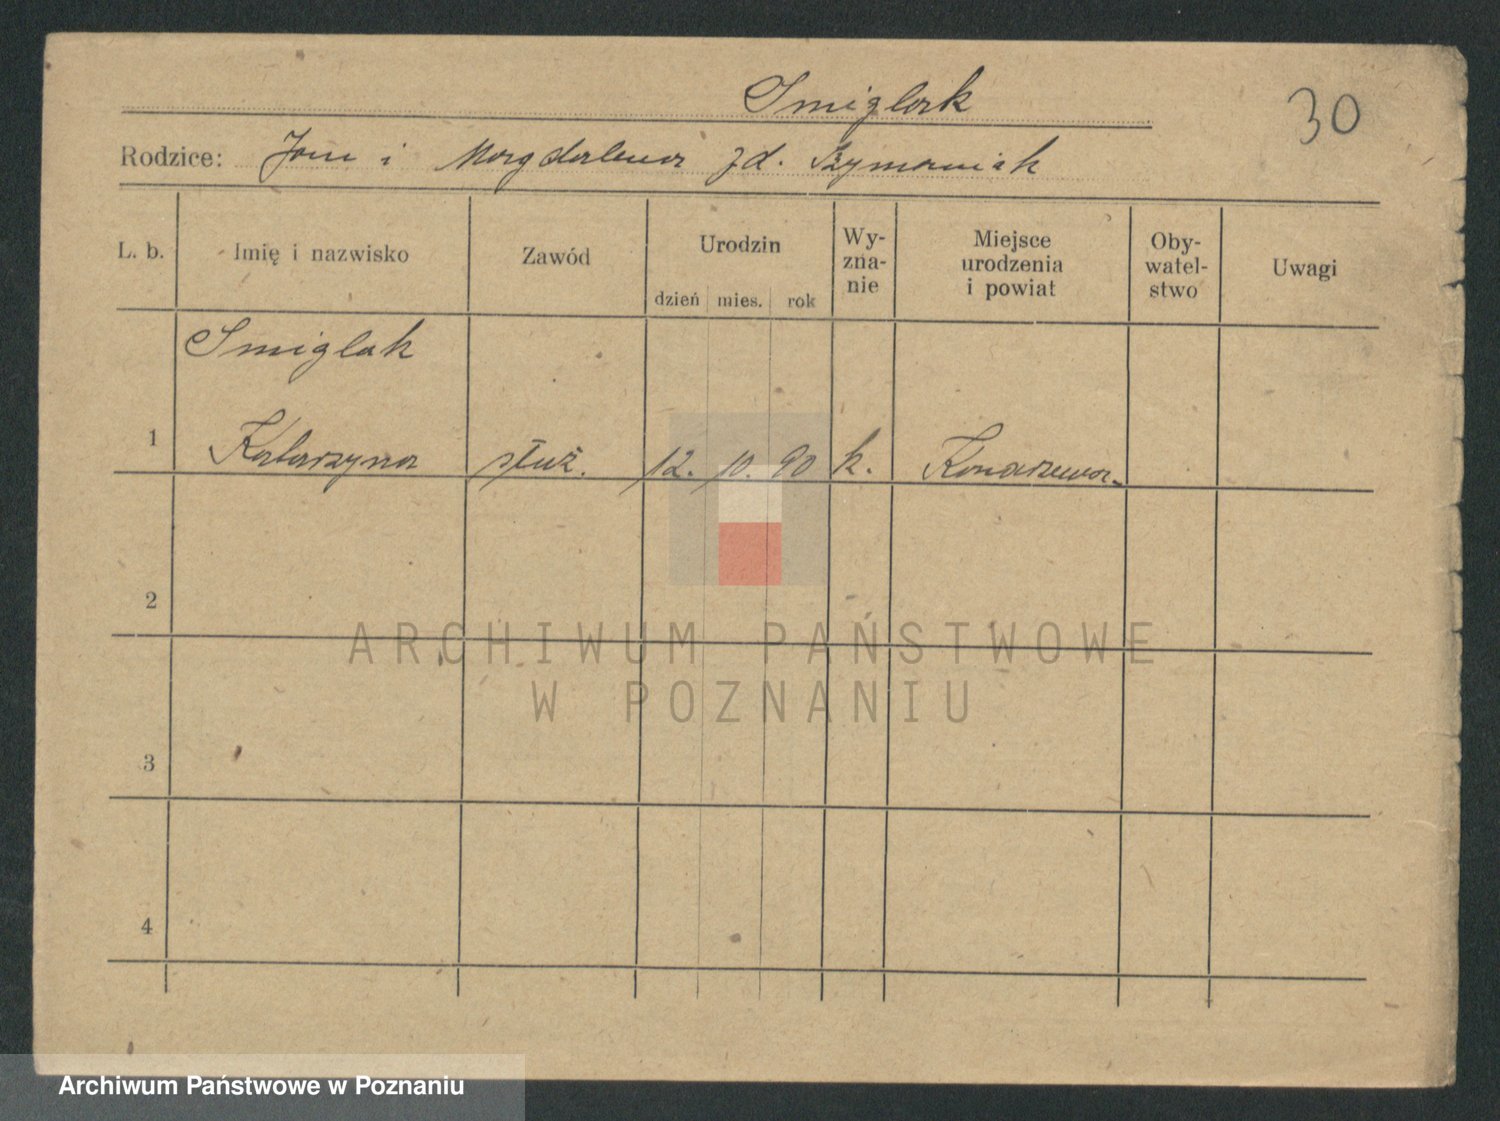 Smiglak
30
Rodzice: Jan i Magdalena zd. Szymaniak
L. b. Imię i nazwisko Zawód Urodzin dzień mies. rok Wy-zna-nie Miejsce urodzenia i powiat Oby-watel-stwo Uwagi
Smiglak
1 Katarzyna służ. 12. 10. 90 k. Konarzewo
2
ARCHIWUM PAŃSTWOWE
W POZNANIU
3
4
Archiwum Państwowe w Poznaniu